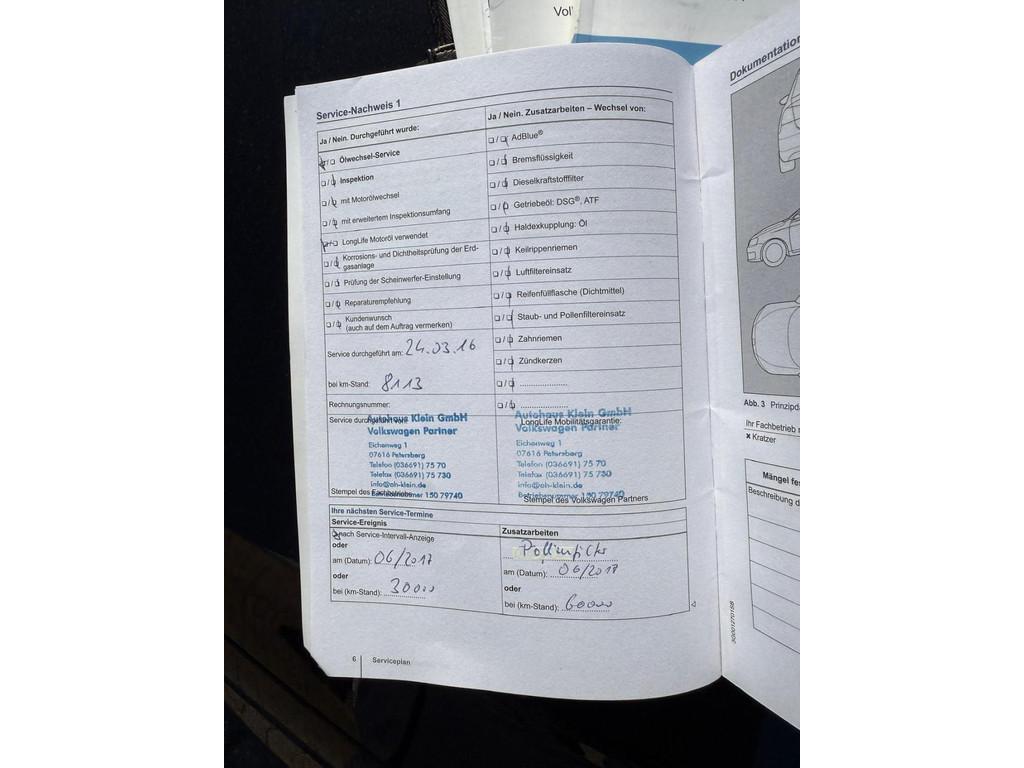 Vol
Service-Nachweis 1
Ja / Nein. Durchgeführt wurde:
Ölwechsel-Service
Inspektion
mit Motorölwechsel
mit erweitertem Inspektionsumfang
LongLife Motoröl verwendet
Korrosions- und Dichtheitsprüfung der Erd-
gasanlage
Prüfung der Scheinwerfer-Einstellung
Reparaturempfehlung
Kundenwunsch
(auch auf dem Auftrag vermerken)
Service durchgeführt am: 24.03.16
bei km-Stand: 8113
Rechnungsnummer:
Service durchgeführt von:
Autohaus Klein GmbH
Volkswagen Partner
Eichenweg 1
07616 Petersberg
Telefon (036691) 75 70
Telefax (036691) 75 730
info@ah-klein.de
Betriebsnummer 150 79740
Stempel des Fachbetriebs
Ja / Nein. Zusatzarbeiten – Wechsel von:
AdBlue®
Bremsflüssigkeit
Dieselkraftstofffilter
Getriebeöl: DSG®, ATF
Haldexkupplung: Öl
Keilrippenriemen
Luftfiltereinsatz
Reifenfüllflasche (Dichtmittel)
Staub- und Pollenfiltereinsatz
Zahnriemen
Zündkerzen
Autohaus Klein GmbH
LongLife Mobilitätsgarantie:
Volkswagen Partner
Eichenweg 1
07616 Petersberg
Telefon (036691) 75 70
Telefax (036691) 75 730
info@ah-klein.de
Betriebsnummer 150 79740
Stempel des Volkswagen Partners
Ihre nächsten Service-Termine
Service-Ereignis
nach Service-Intervall-Anzeige
oder
am (Datum): 06/2017
oder
bei (km-Stand): 30000
Zusatzarbeiten
Pollenfilter
am (Datum): 06/2018
oder
bei (km-Stand): 60000
6 Serviceplan
Dokumentation
Abb. 3 Prinzipd
Ihr Fachbetrieb
x Kratzer
Mängel fes
Beschreibung d